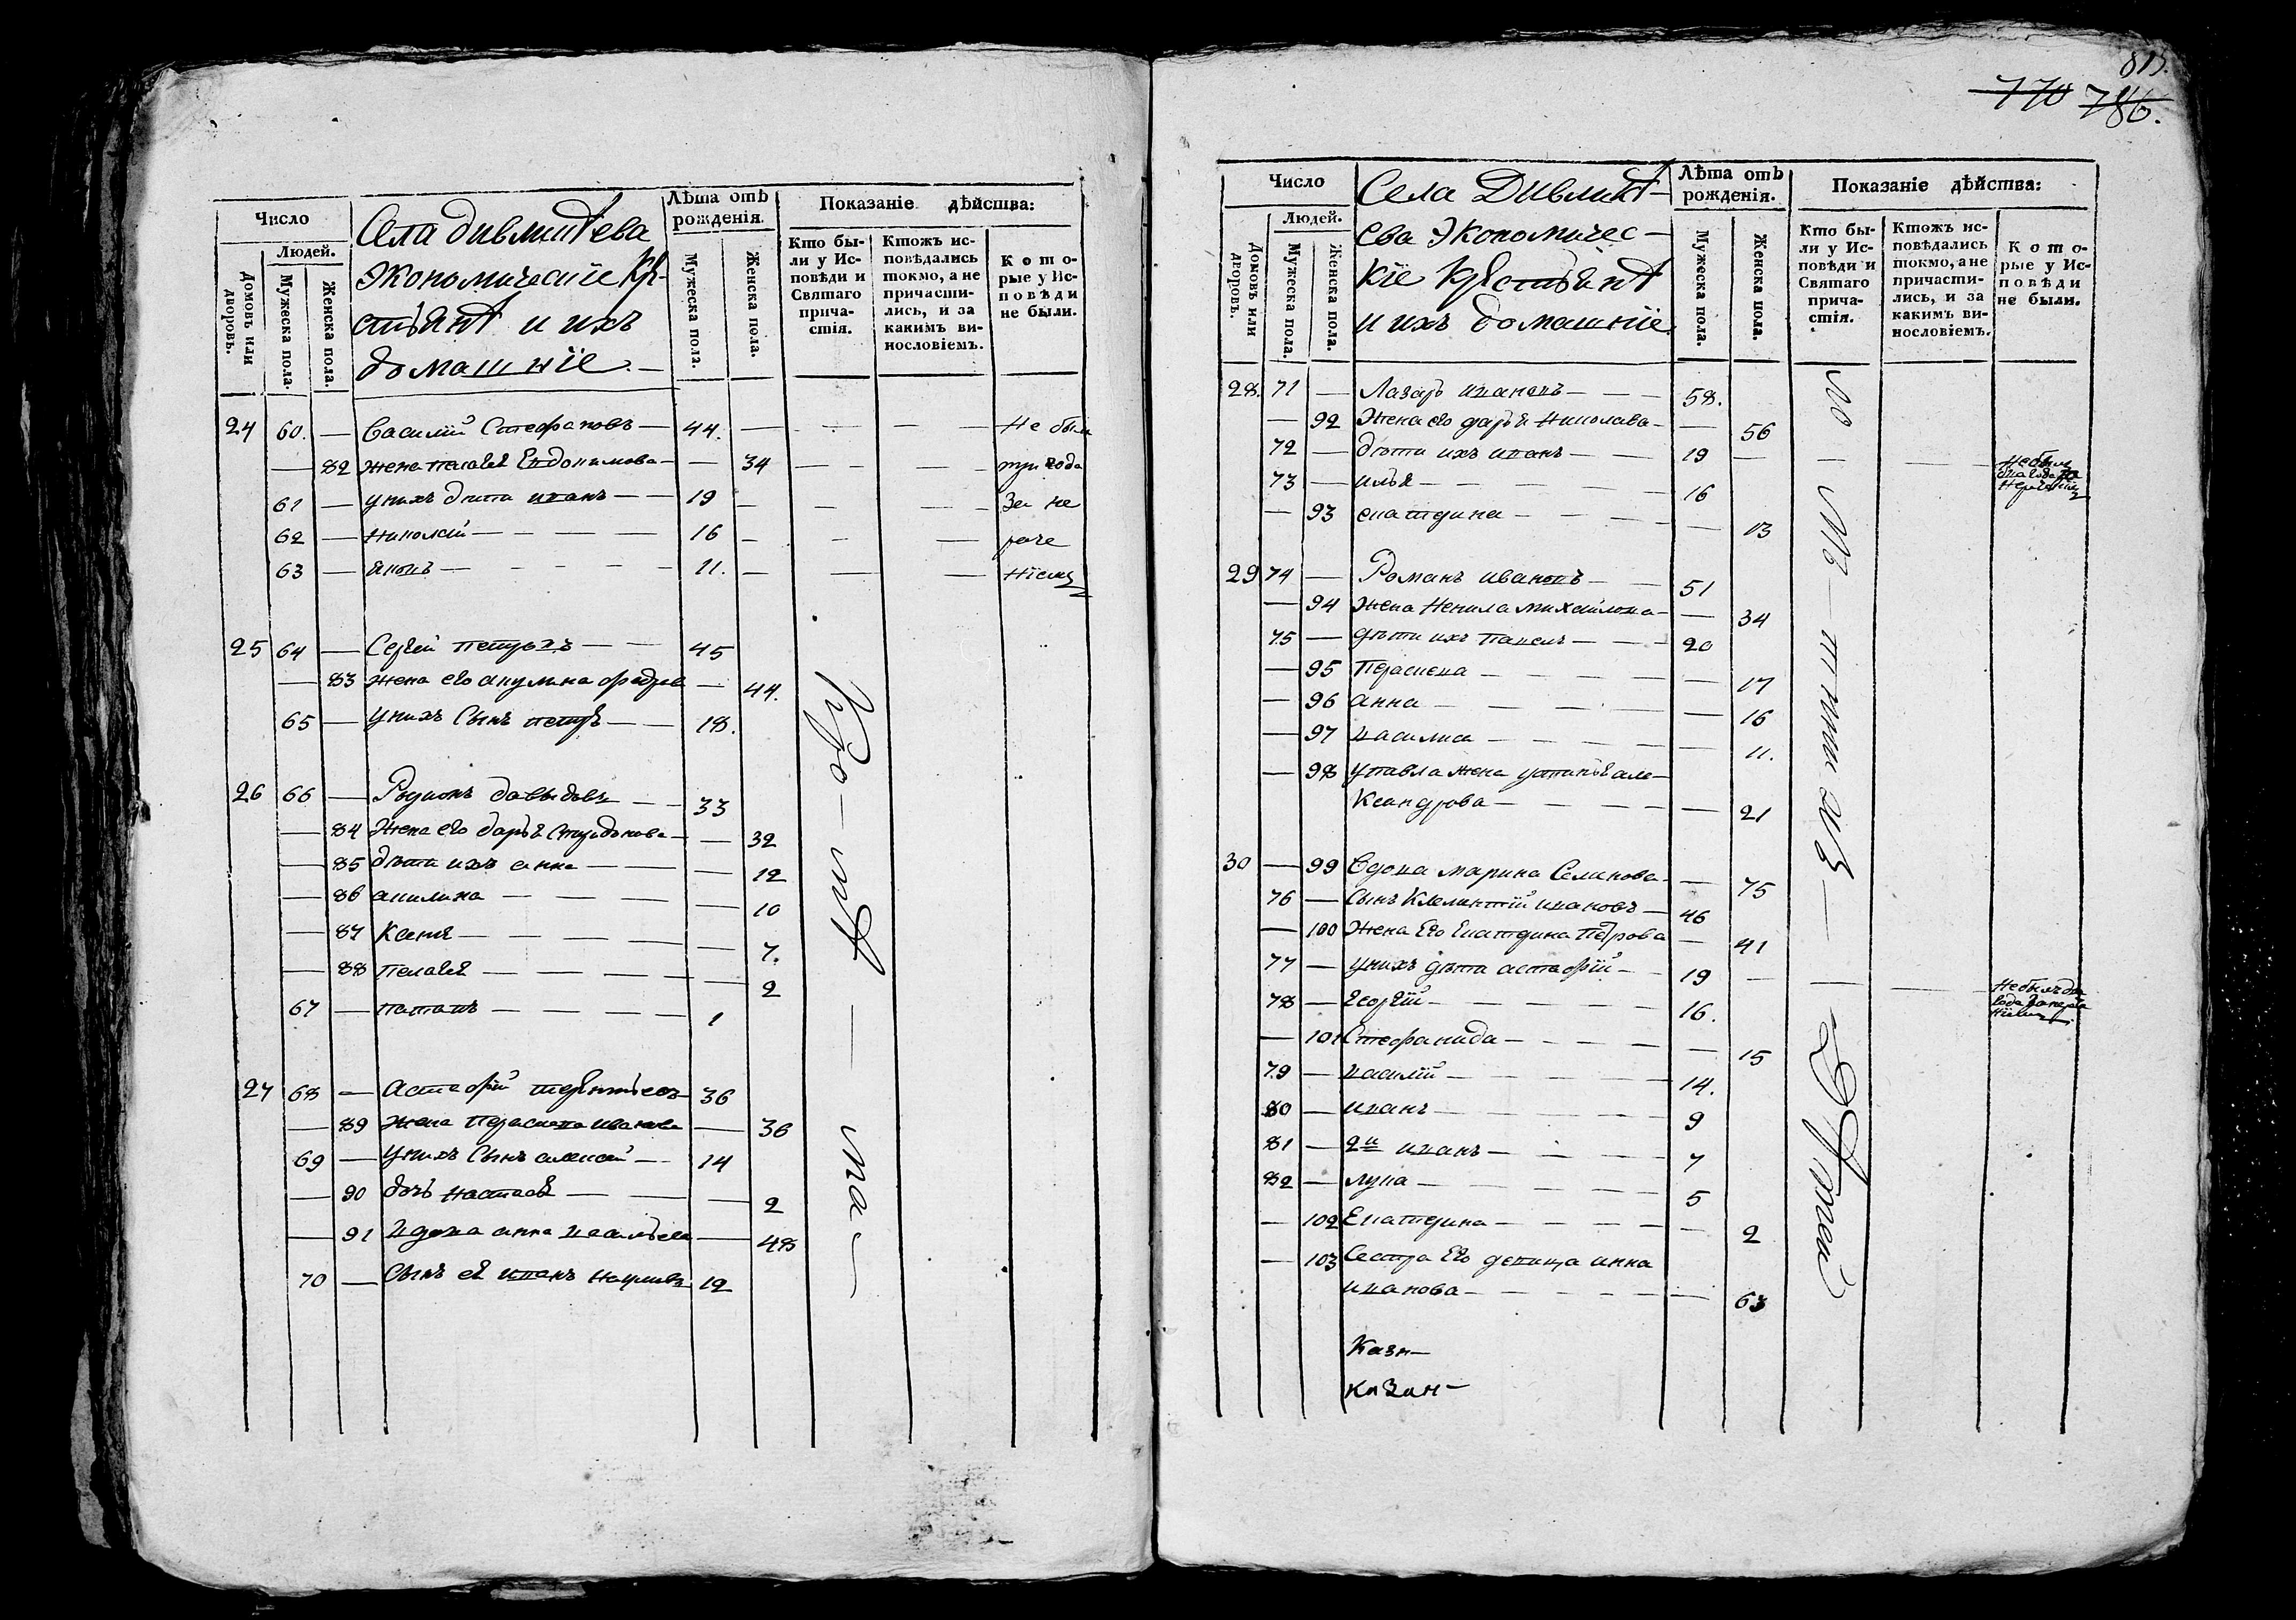 Число
Людей.
Домовъ или дворовъ.
Мужеска пола.
Женска пола.
Села дивлитѣева
Экономическіе Кре-
стьянѣ и ихъ
домашніе
Лѣта отъ рожденія.
Мужеска пола.
Женска пола.
Показаніе дѣйства:
Кто бы-
ли у Ис-
повѣди и
Святаго
прича-
стія.
Ктожъ ис-
повѣдались
токмо, а не
причасти-
лись, и за
какимъ ви-
нословіемъ.
Кото-
рые у Ис-
повѣди
не были.
24 60. — Василій Стефановъ — 44. — — — Не были
— 82 жена пелагея Евдокимова — — 34 — — три года
61 — у нихъ дѣти иванъ — 19 — — — За не
62 — Николай — 16 — — — раче
63 — яковъ — 11. — — — ніемъ
25 64 — Сергѣй петровъ — 45
— 83 жена его акулина — 44.
65 — у нихъ Сынъ петръ — 18.
26 66 — Родионъ давыдовъ — 33
— 84 Жена его дарья Спиридонова — — 32
— 85 дѣти ихъ анна — — 12
— 86 акилина — — 10
— 87 Ксенія — — 7.
— 88 пелагея — — 2
67 — потапъ — 1
27 68 — Астафій терентьевъ 36
— 89 жена Парасковья иванова — 36
69 — у нихъ Сынъ алексей — 14
— 90 дочь настасья — — 2
— 91 вдова анна васильева — 48
70 — Сынъ ея иванъ наумовъ 12
813.
770 786.
Число
Людей.
Домовъ или дворовъ.
Мужеска пола.
Женска пола.
Села Дивлитѣ-
ева Экономичес-
кіе Крестьянѣ
и ихъ домашніе
Лѣта отъ рожденія.
Мужеска пола.
Женска пола.
Показаніе дѣйства:
Кто бы-
ли у Ис-
повѣди и
Святаго
прича-
стія.
Ктожъ ис-
повѣдались
токмо, а не
причасти-
лись, и за
какимъ ви-
нословіемъ.
Кото-
рые у Ис-
повѣди
не были.
28. 71 — Лазарь ивановъ — 58.
— 92 Жена его дарья Николаева — — 56
72 — дѣти ихъ иванъ — 19 — — — Небылъ
73 — илья — 16
— 93 екатерина — — 13
29 74 — Романъ ивановъ — 51
— 94 жена Ненила михайлова — — 34
75 — дѣти ихъ павелъ — 20
— 95 Параскева — — 17
— 96 анна — — 16
— 97 василиса — — 11.
— 98 у павла жена устинья але-
ксандрова — — 21
30 — 99 Вдова марина Семенова — — 75
76 — Сынъ Клементій ивановъ — 46
— 100 Жена Его Екатерина Петрова — 41
77 — у нихъ дѣти астафій — 19 — — — Небылъ два
года за нераче
ніемъ
78 — георгій — 16.
— 101 Стефанида — — 15
79 — василій — 14.
80 — иванъ — 9
81 — 2й иванъ — 7
82 — лука — 5
— 102 Екатерина — — 2
— 103 Сестра Его девица анна
иванова — — 63
Казн—
казан—